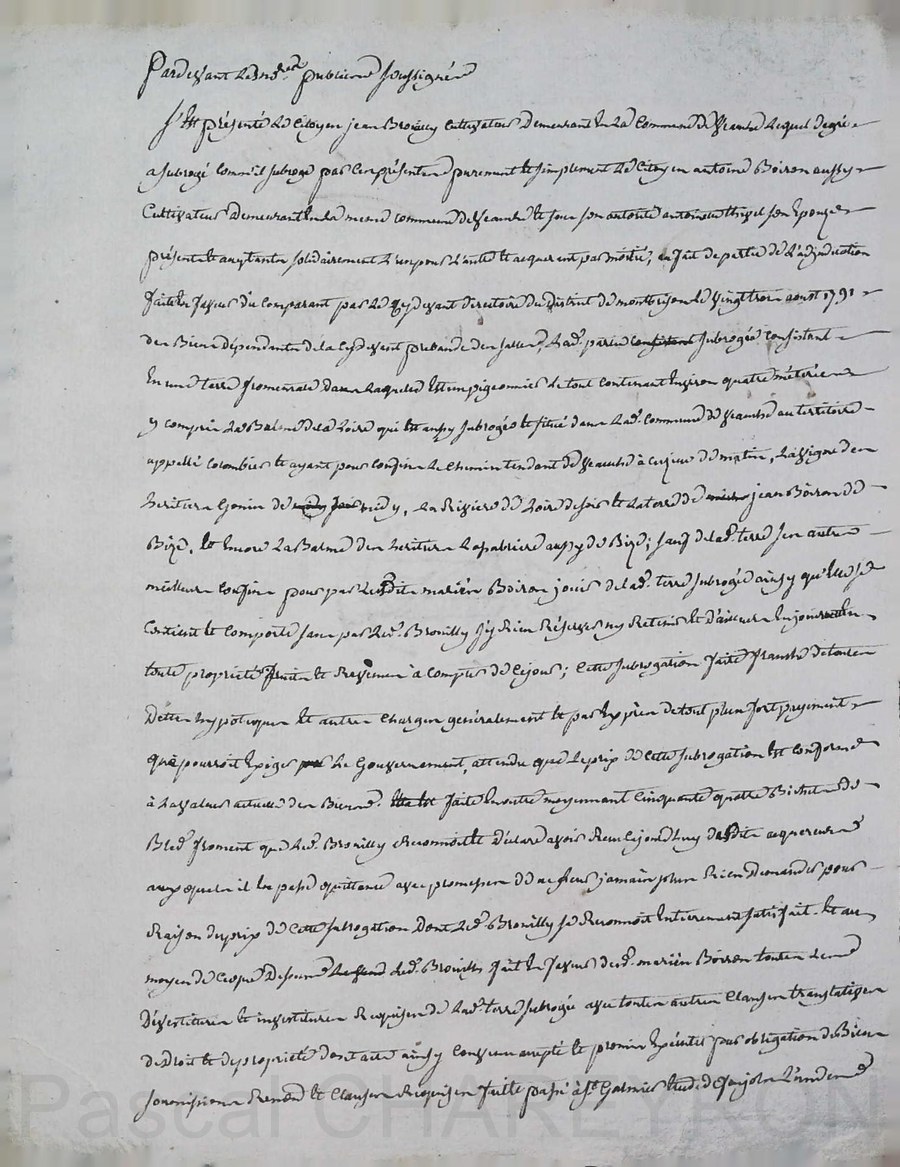 Pardevant Les Nores publicqs soussignés
S'Est présenté Le Citoyen jean Brouilly Cultivateur Demeurant En La Commune de Veauche Lequel degré
a subrogé comme il subroge par Ces présentes purement et simplement Le Citoyen antoine Boiron aussy
Cultivateur Demeurant En la meme commune de Veauche et sous son autorité antoinette son Epouze
présente et acceptante solidairement L'un pour L'autre et acquerant par moitié, en fait de partie de L'adjudication
faitte En faveur du Comparant par Le Cy devant directoire du District de montbrison Le Vingt trois aoust 1791
des Biens dépendants de la Cy devant prebande des salles, Lade partie subrogée consistant
En une terre fromentale Dans Laquelle Est un pigeonnier Le tout contenant Environ quatre métérées
y compris La Balme de la Loire qui Est aussy subrogée et situé dans Lade Commune de Veauche au territoire
appellé Colombier et ayant pour confins Le Chemin tendant de Veauche à Cuzieu de matin, La Vigne des
heritiers Gonin de midy, La Riviere de Loire de soir et La terre de jean Boiron de
Bize, Et Encore La Balme des heritiers aussy de Bize; sauf de lade terre ses autres
meilleurs Confins pour par Lesdits mariés Boiron jouir de lade terre subrogée ainsy qu'Elle se
Contient et Comporte sans par Led. Brouilly s'y Rien Réserver ny Retenir Et d'ailleurs En jouir En
toute propriété fruits et Revenus à Compter de Ce jour; Cette subrogation faite franche de toutes
Dettes hypoteques et autres Charges généralement et par Exprès de tout plus fort payement
qu'a pourroit Exiger Le Gouvernement, attendu que Le prix de Cette subrogation Est conforme
à La valeur actuelle des Biens. faite En outre moyennant Cinquante quatre Bichets de
Bled froment que Led. Brouilly Reconnoit et Déclare avoir Reçu Cejourd'huy desdits acquereurs
auxquels il En passe quittance avec promesse de ne Leurs jamais plus Rien Demander pour
Raison du prix de Cette subrogation Dont Led. Brouilly se Reconnoit Entierement satisfait. Et au
moyen de Ce que Dessus Led. Brouilly fait En faveur desd. mariés Boiron toutes
Dévestitures et investitures Requises de Lade terre subrogée avec toutes autres Clauses translatives
de Droit et de propriété dont acte ainsy convenu accepté et promis Exécuter par obligation de Biens
soumissions Renon. et Clauses Requises faitte passé à St Galmier Etude d'Anjolr L'un de
Pascal CHAREYRON